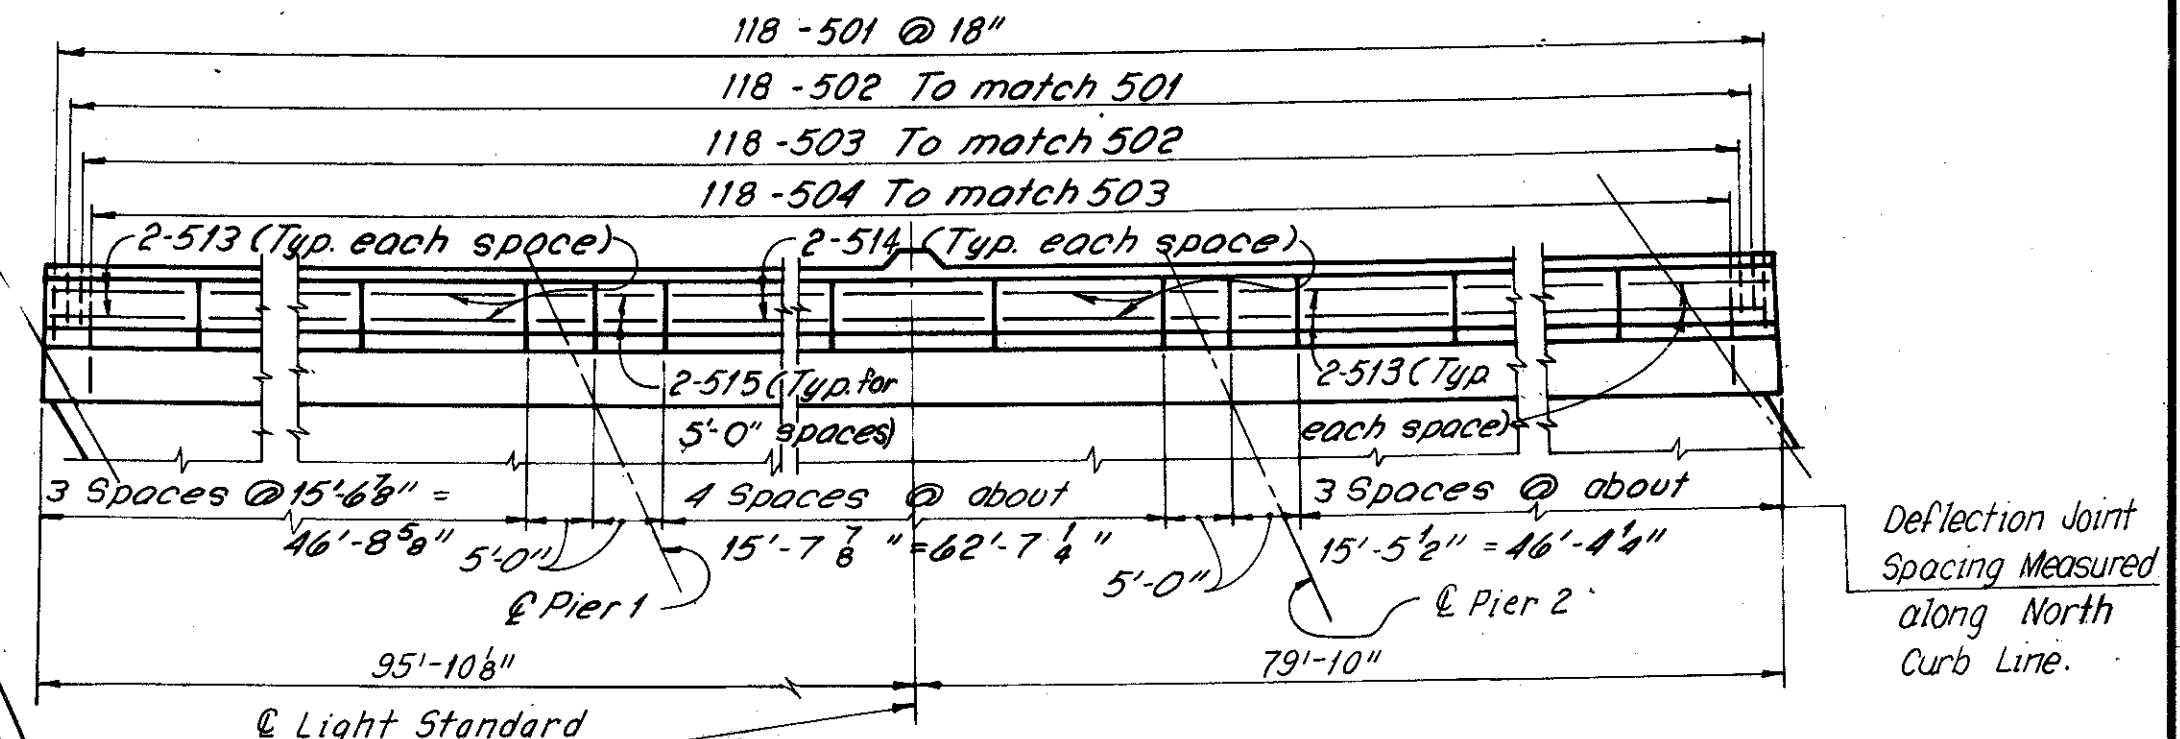 118 - 501 @ 18"
118 - 502 To match 501
118 - 503 To match 502
118 - 504 To match 503
2-513 (Typ. each space)
2-514 (Typ. each space)
2-515 (Typ. for
5'-0" spaces)
2-513 (Typ.
each space)
3 Spaces @ 15'-6 7/8" =
46'-8 5/8"
5'-0"
4 Spaces @ about
15'-7 7/8" = 62'-7 1/4"
5'-0"
3 Spaces @ about
15'-5 1/2" = 46'-4 1/4"
Deflection Joint
Spacing Measured
along North
Curb Line.
℄ Pier 1
℄ Pier 2
95'-10 1/8"
79'-10"
℄ Light Standard